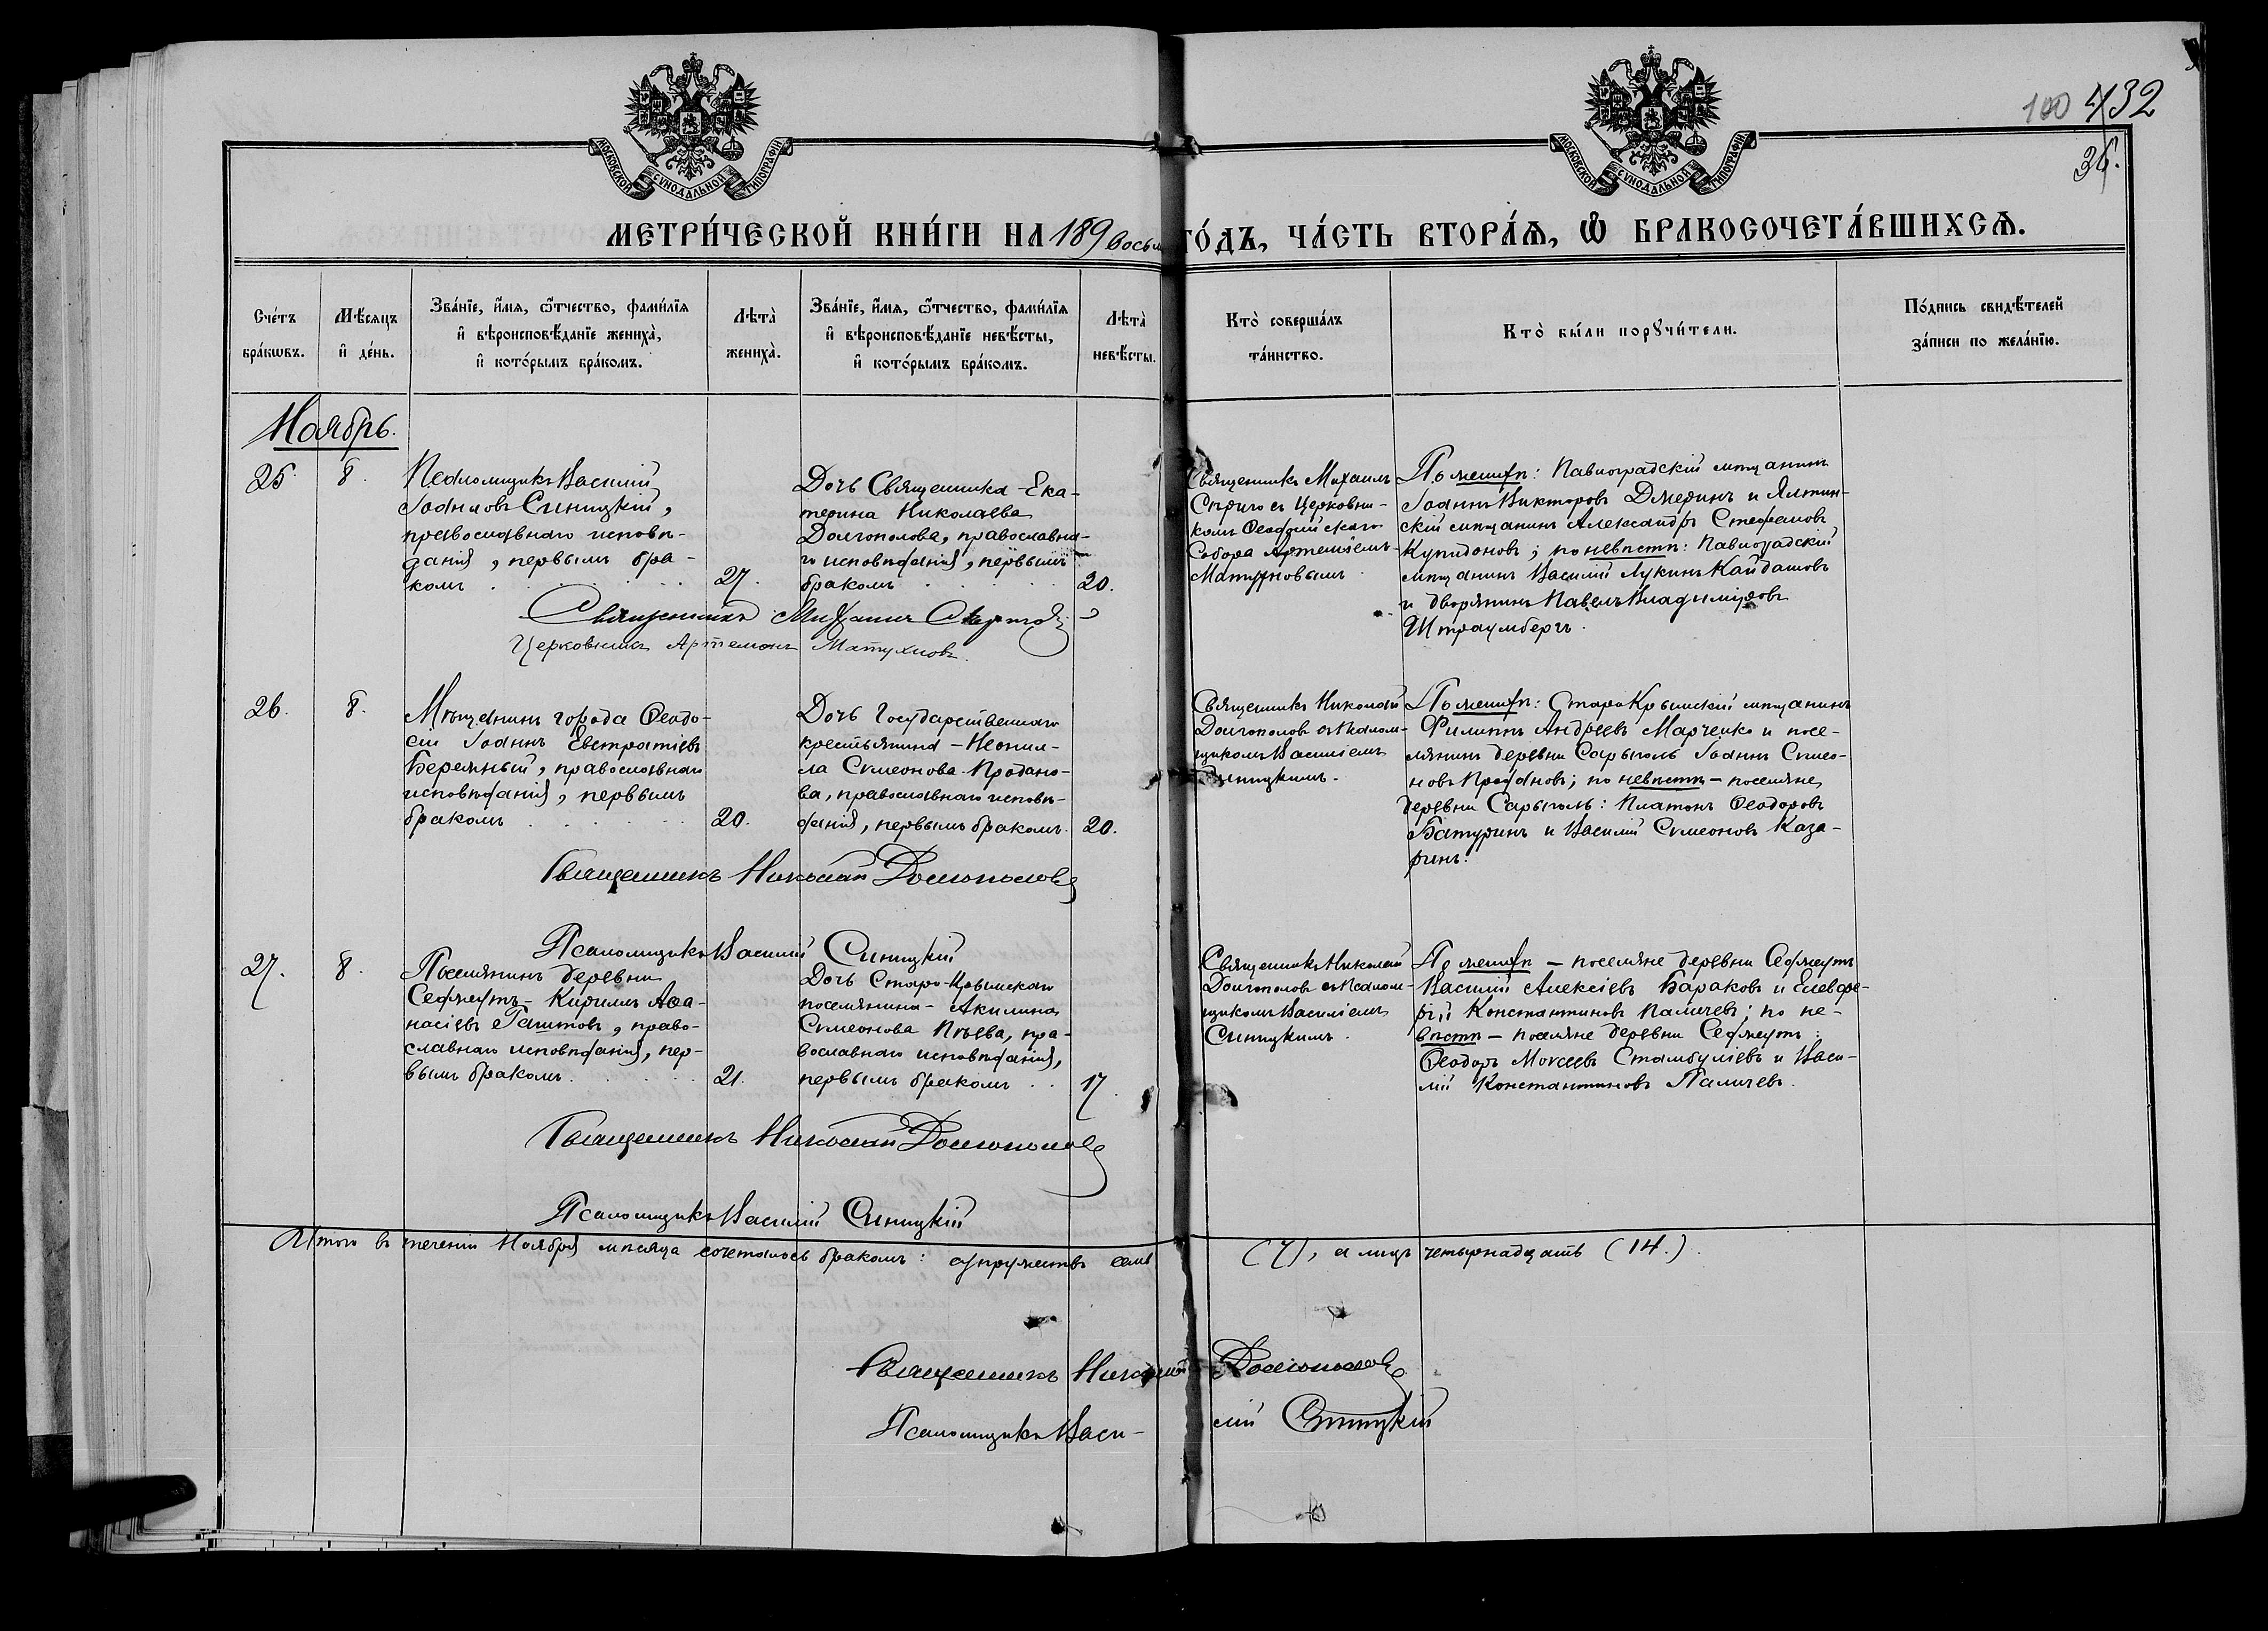 100 432
36.
МОСКОВСКОЙ СѴНОДАЛЬНОЙ ТИПОГРАФІИ
МОСКОВСКОЙ СѴНОДАЛЬНОЙ ТИПОГРАФІИ
МЕТРИ́ЧЕСКОЙ КНИ́ГИ НА 189 восьм ГО́ДЪ, ЧА́СТЬ ВТОРА́Ѧ, Ѿ БРАКОСОЧЕТА́ВШИХСѦ.
Сче́тъ
бра́кѡвъ.
Мѣ́сяцъ
и҆ де́нь.
Зва́нїе, и҆́мѧ, ѻ҆́тчество, фами́лїѧ
и҆ вѣроисповѣ́данїе жениха̀,
и҆ кото́рымъ бра́комъ.
Лѣта̀
жениха̀.
Зва́нїе, и҆́мѧ, ѻ҆́тчество, фами́лїѧ
и҆ вѣроисповѣ́данїе невѣ́сты,
и҆ кото́рымъ бра́комъ.
Лѣта̀
невѣ́сты.
Кто̀ соверша́лъ
та́инство.
Кто̀ бы́ли порꙋчи́тели.
По́дпись свидѣ́телей
за́писи по жела́нїю.
Ноябрь.
25. 8.
Псаломщикъ Василій
Іоанновъ Синицкій,
православнаго исповѣ-
данія, первымъ бра-
комъ . . . . . 27.
Дочь Священника - Ека-
терина Николаева
Долгополова, православна-
го исповѣданія, первымъ
бракомъ . . . 20.
Священникъ Михаилъ
съ Церковни-
комъ Ѳеодосійскаго
Собора Артеміемъ
Матухновымъ.
По женихѣ: Павлоградскій мѣщанинъ
Іоаннъ Викторовъ Дмеринъ и Ялтин-
скій мѣщанинъ Александръ Стефановъ
Купидоновъ; по невѣстѣ: Павлоградскій
мѣщанинъ Василій Лукинъ Кайдашовъ
и дворянинъ Павелъ Владиміровъ
Штраумбергъ.
Священникъ Михаилъ
Церковникъ Артемонъ Матухновъ.
26. 8.
Мѣщанинъ города Ѳеодо-
сіи Іоаннъ Евстратіевъ
Бережный, православнаго
исповѣданія, первымъ
бракомъ . . . . . 20.
Дочь Государственнаго
крестьянина - Неонил-
ла Симеонова Продано-
ва, православнаго исповѣ-
данія, первымъ бракомъ. 20.
Священникъ Николай
Долгополовъ съ Псалом-
щикомъ Василіемъ
Синицкимъ.
По женихѣ: СтароКрымскій мѣщанинъ
Филиппъ Андреевъ Марченко и посе-
лянинъ деревни Сарыголь Іоаннъ Симео-
новъ Продановъ; по невѣстѣ - поселяне
деревни Сарыголь: Платонъ Ѳеодоровъ
Батуринъ и Василій Симеоновъ Каза-
ринъ.
Священникъ Николай Долгополовъ
Псаломщикъ Василій Синицкій
27. 8.
Поселянинъ деревни
Сефжеутъ - Кирилъ Аѳа-
насіевъ Гаитовъ, право-
славнаго исповѣданія, пер-
вымъ бракомъ . . . . . 21.
Дочь Старо-Крымскаго
поселянина - Акилина
Симеонова Пѣева, пра-
вославнаго исповѣданія,
первымъ бракомъ . . 17.
Священникъ Николай
Долгополовъ съ Псалом-
щикомъ Василіемъ
Синицкимъ.
По женихѣ - поселяне деревни Сефжеутъ
Василій Алексіевъ Бараковъ и Елевѳе-
рій Константиновъ Паличевъ; по не-
вѣстѣ - поселяне деревни Сефжеутъ:
Ѳеодоръ Моѵсеевъ Стамбуліевъ и Васи-
лій Константиновъ Паличевъ.
Священникъ Николай Долгополовъ
Псаломщикъ Василій Синицкій
Итого въ теченіи Ноября мѣсяца сочеталось бракомъ: супружествъ семь (7), а лицъ четырнадцать (14.).
Священникъ Николай Долгополовъ
Псаломщикъ Васи- лій Синицкій